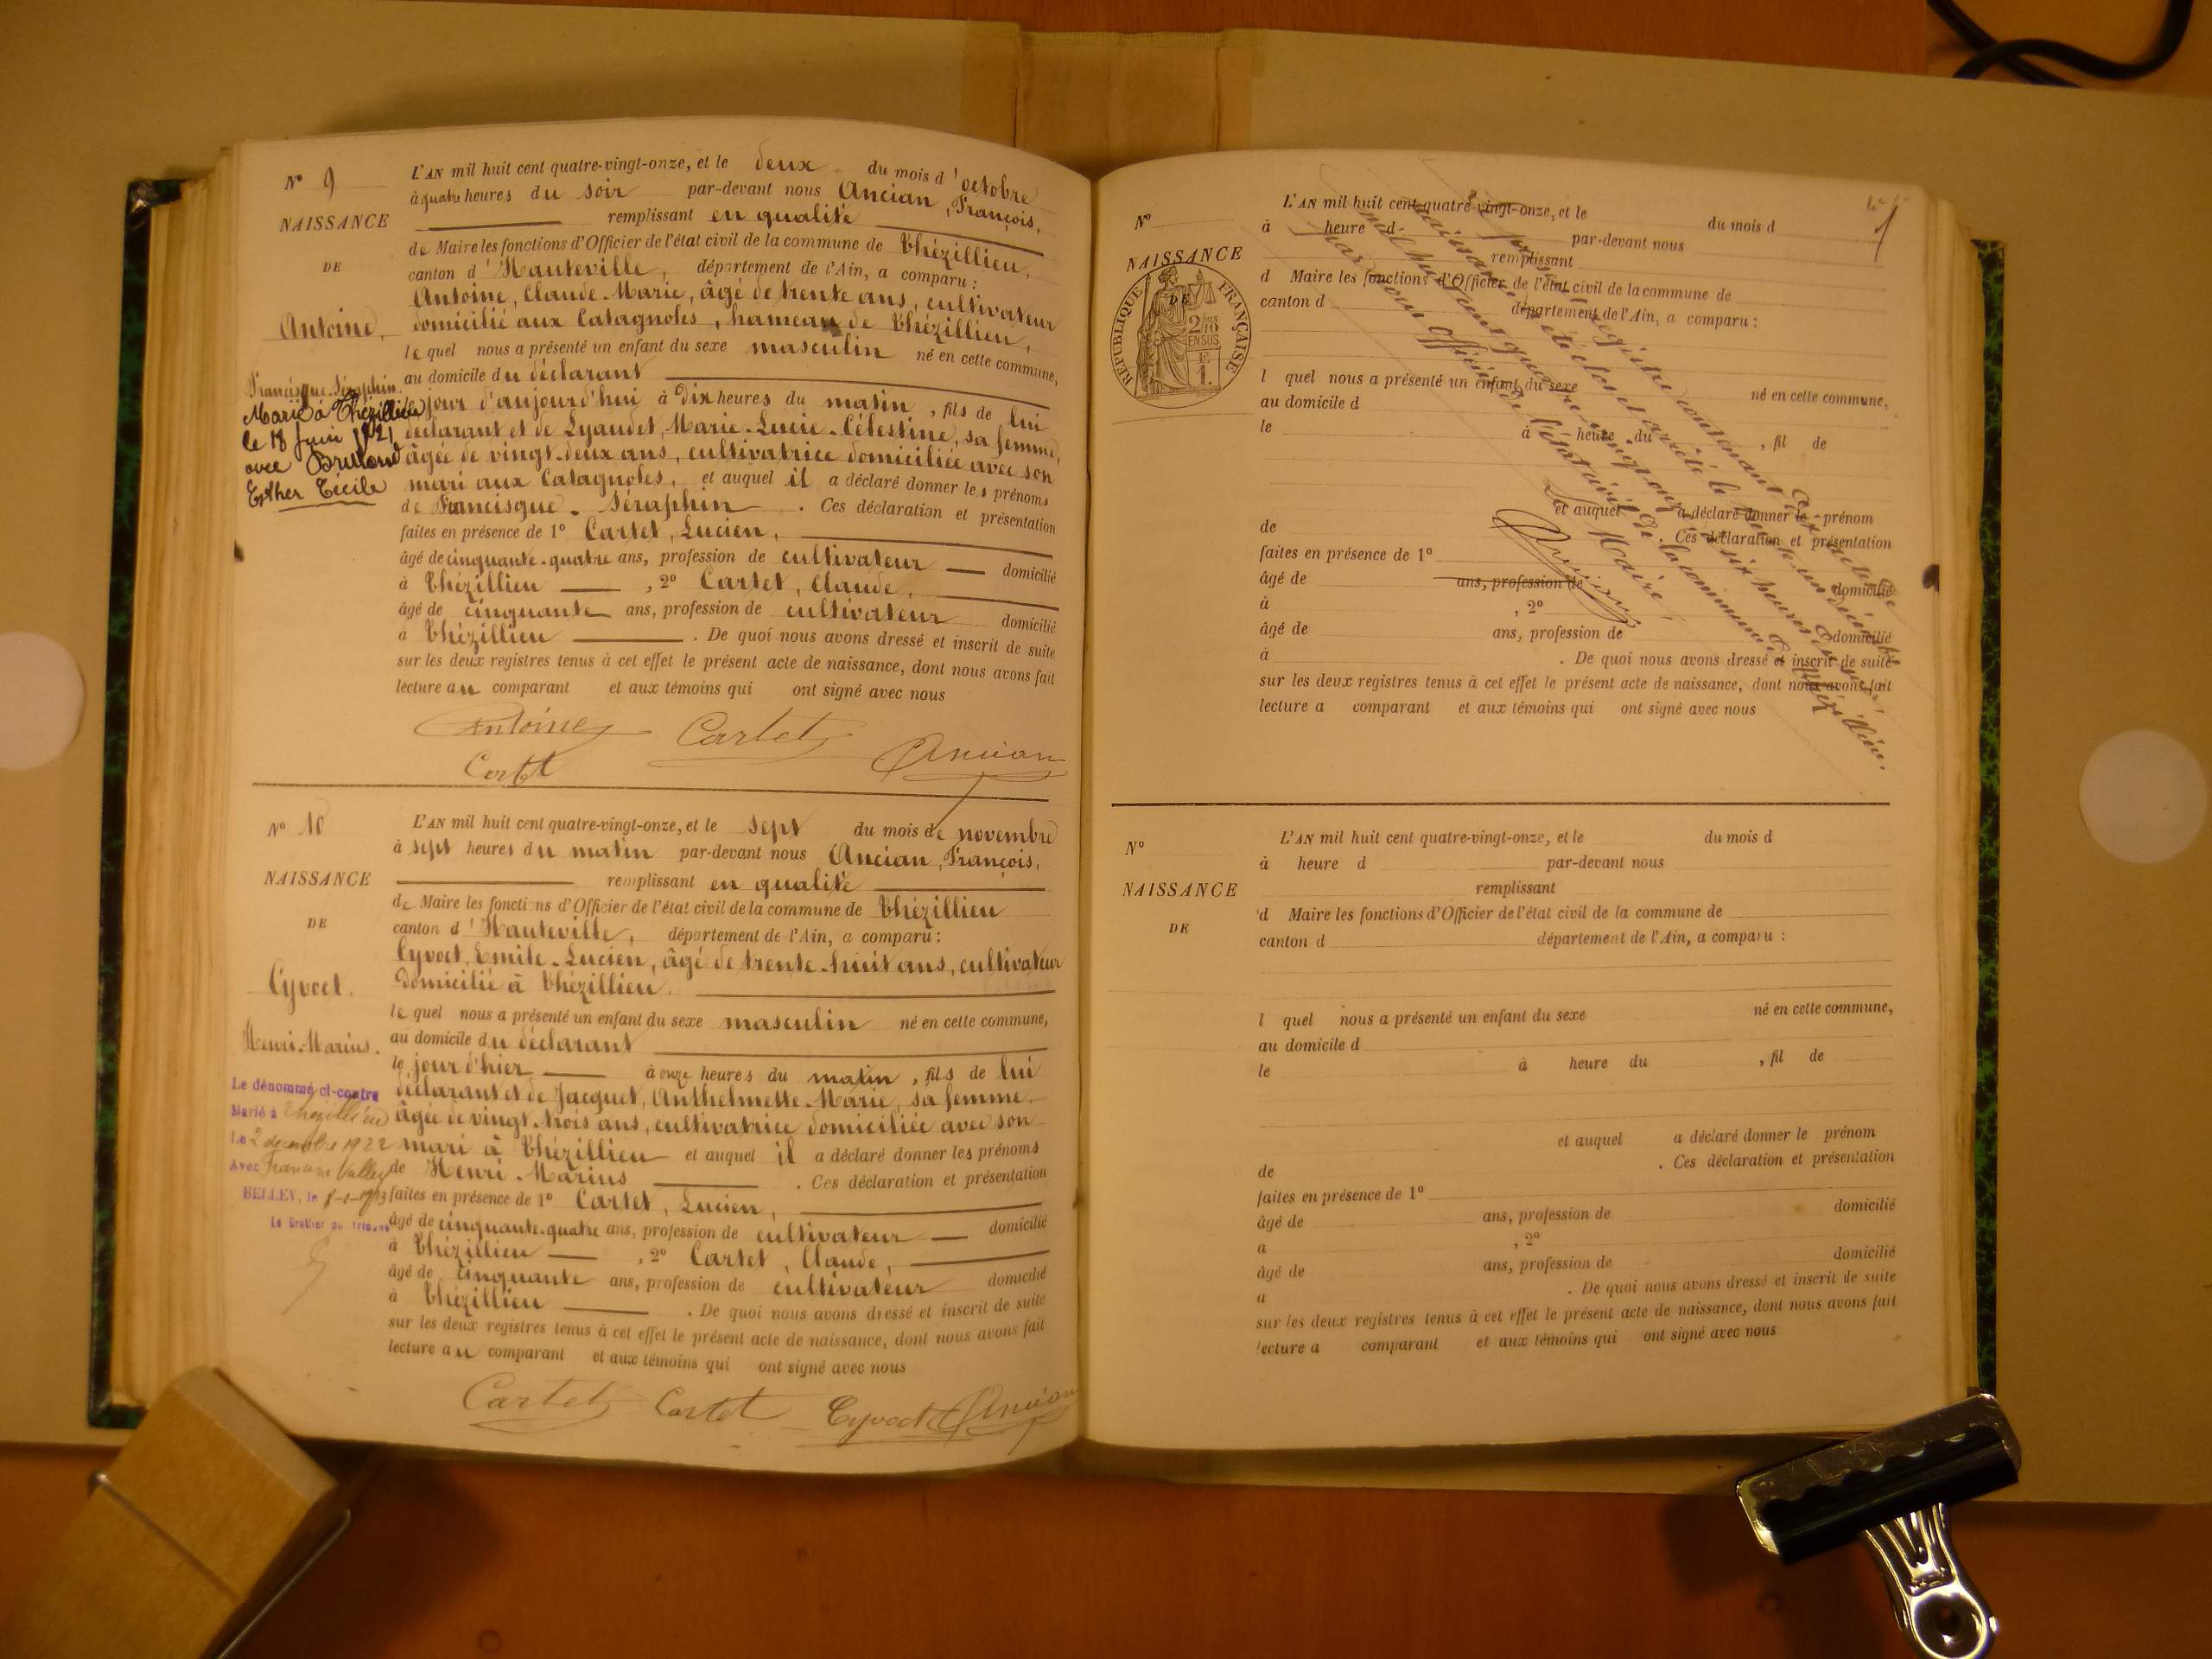 N° 9
NAISSANCE
DE
Antoine,
Francisque-Séraphin.
Marié à Thézillieu
le 18 Juin 1921
avec
Esther Cécile
L'AN mil huit cent quatre-vingt-onze, et le deux du mois d'octobre
à quatre heures du soir par-devant nous Ancian, François,
remplissant en qualité
de Maire les fonctions d'Officier de l'état civil de la commune de Thézillieu,
canton d'Hauteville, département de l'Ain, a comparu :
Antoine, Claude-Marie, âgé de trente ans, cultivateur
domicilié aux Catagnoles, hameau de Thézillieu,
lequel nous a présenté un enfant du sexe masculin né en cette commune,
au domicile du déclarant
le jour d'aujourd'hui à dix heures du matin, fils de lui
déclarant et de Lyaudet, Marie-Lucie-Célestine, sa femme,
âgée de vingt-deux ans, cultivatrice domiciliée avec son
mari aux Catagnoles, et auquel il a déclaré donner les prénoms
de Francisque-Séraphin. Ces déclaration et présentation
faites en présence de 1° Cartet, Lucien,
âgé de cinquante-quatre ans, profession de cultivateur domicilié
à Thézillieu, 2° Cartet, Claude,
âgé de cinquante ans, profession de cultivateur domicilié
à Thézillieu. De quoi nous avons dressé et inscrit de suite
sur les deux registres tenus à cet effet le présent acte de naissance, dont nous avons fait
lecture au comparant et aux témoins qui ont signé avec nous
Antoine Cartet Ancian
Cartet
N° 10
NAISSANCE
DE
Cyvoct.
Henri-Marius.
Le dénommé ci-contre
Marié à Thézillieu
Le 2 décembre 1922
Avec
BELLEY, le
Le Greffier du tribunal
L'AN mil huit cent quatre-vingt-onze, et le sept du mois de novembre
à sept heures du matin par-devant nous Ancian, François,
remplissant en qualité
de Maire les fonctions d'Officier de l'état civil de la commune de Thézillieu
canton d'Hauteville, département de l'Ain, a comparu :
Cyvoct, Emile-Lucien, âgé de trente-huit ans, cultivateur
domicilié à Thézillieu.
lequel nous a présenté un enfant du sexe masculin né en cette commune,
au domicile du déclarant
le jour d'hier à onze heures du matin, fils de lui
déclarant et de Jacquet, Anthelmette-Marie, sa femme,
âgée de vingt-trois ans, cultivatrice domiciliée avec son
mari à Thézillieu et auquel il a déclaré donner les prénoms
de Henri-Marius. Ces déclaration et présentation
faites en présence de 1° Cartet, Lucien,
âgé de cinquante-quatre ans, profession de cultivateur domicilié
à Thézillieu, 2° Cartet, Claude,
âgé de cinquante ans, profession de cultivateur domicilié
à Thézillieu. De quoi nous avons dressé et inscrit de suite
sur les deux registres tenus à cet effet le présent acte de naissance, dont nous avons fait
lecture au comparant et aux témoins qui ont signé avec nous
Cartet Cartet Cyvoct Ancian
N°
NAISSANCE
DE
RÉPUBLIQUE FRANÇAISE
2/10 EN SUS
L'AN mil huit cent quatre-vingt-onze, et le du mois d
à heure d par-devant nous
remplissant
d Maire les fonctions d'Officier de l'état civil de la commune de
canton d département de l'Ain, a comparu :
l quel nous a présenté un enfant du sexe né en cette commune,
au domicile d
le à heure du , fil de
et auquel a déclaré donner le prénom
de . Ces déclaration et présentation
faites en présence de 1°
âgé de ans, profession de domicilié
à , 2°
âgé de ans, profession de domicilié
à . De quoi nous avons dressé et inscrit de suite
sur les deux registres tenus à cet effet le présent acte de naissance, dont nous avons fait
lecture a comparant et aux témoins qui ont signé avec nous
Le présent registre contenant dix actes de
naissance a été clos et arrêté le trente-un décembre
mil huit cent quatre-vingt-onze à six heures du soir
par nous Officier de l'état civil de la commune de Thézillieu.
Le Maire
Ancian
N°
NAISSANCE
DE
L'AN mil huit cent quatre-vingt-onze, et le du mois d
à heure d par-devant nous
remplissant
d Maire les fonctions d'Officier de l'état civil de la commune de
canton d département de l'Ain, a comparu :
l quel nous a présenté un enfant du sexe né en cette commune,
au domicile d
le à heure du , fil de
et auquel a déclaré donner le prénom
de . Ces déclaration et présentation
faites en présence de 1°
âgé de ans, profession de domicilié
à , 2°
âgé de ans, profession de domicilié
à . De quoi nous avons dressé et inscrit de suite
sur les deux registres tenus à cet effet le présent acte de naissance, dont nous avons fait
lecture a comparant et aux témoins qui ont signé avec nous